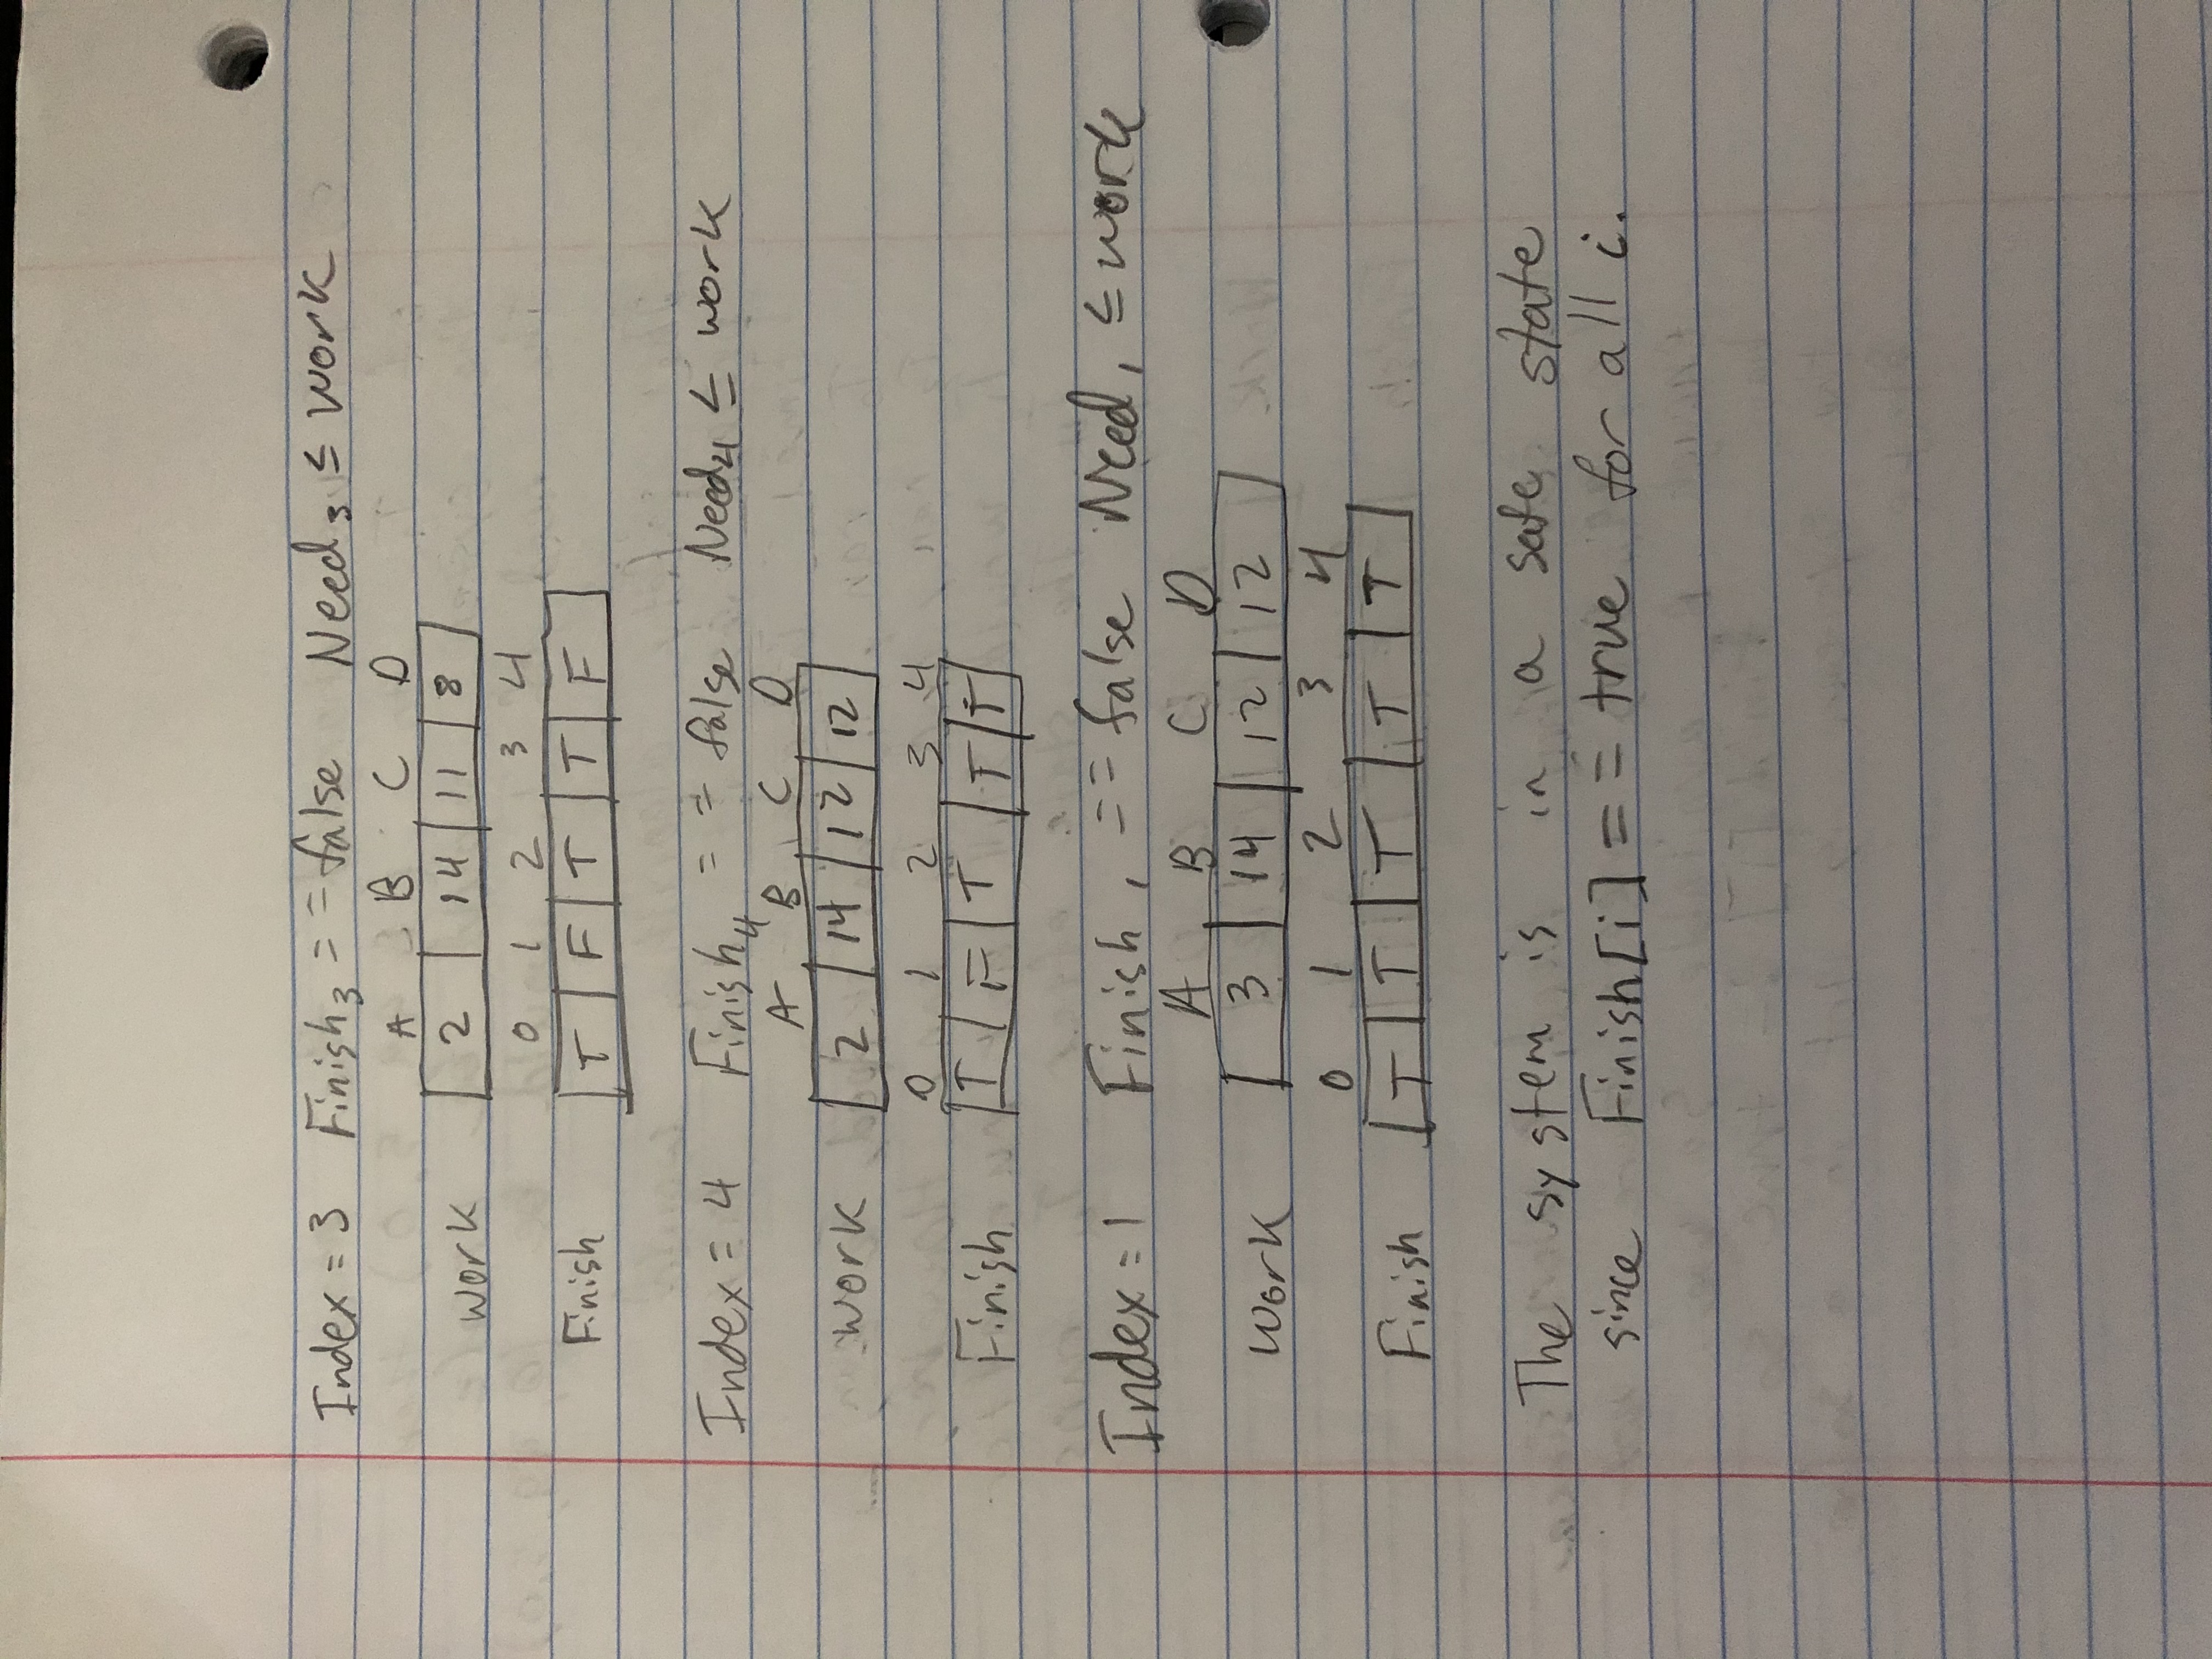 Index = 3 Finish3 == false Need3 ≤ work
A B C D
work 2 14 11 8
0 1 2 3 4
Finish T F T T F
Index = 4 Finish4 == false Need4 ≤ work
A B C D
work 2 14 12 12
0 1 2 3 4
Finish T F T T T
Index = 1 Finish1 == false Need1 ≤ work
A B C D
work 3 14 12 12
0 1 2 3 4
Finish T T T T T
The system is in a safe state
since Finish[i] == true for all i.